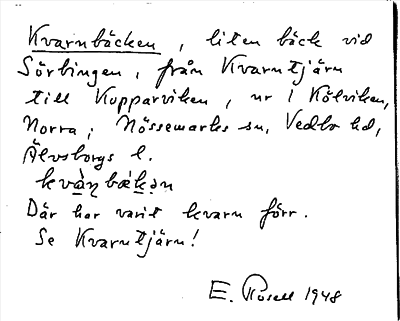 Kvarnbäcken, liten bäck vid
Sörbingen, från Kvarntjärn
till Kopparviken, nr 1 Kölviken,
Norra; Nössemarks sn, Vedbo hd,
Älvsborgs l.
kvàɳ bækən
Där har varit kvarn förr.
Se Kvarntjärn!
E. Rosell 1948